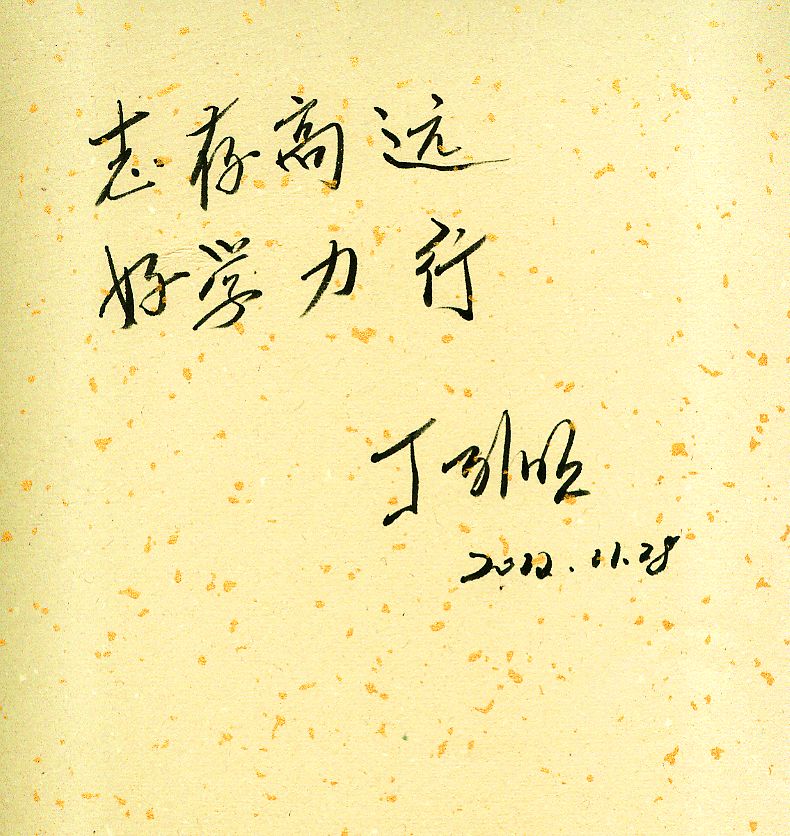 志存高远
好学力行
丁列明
2012.11.28